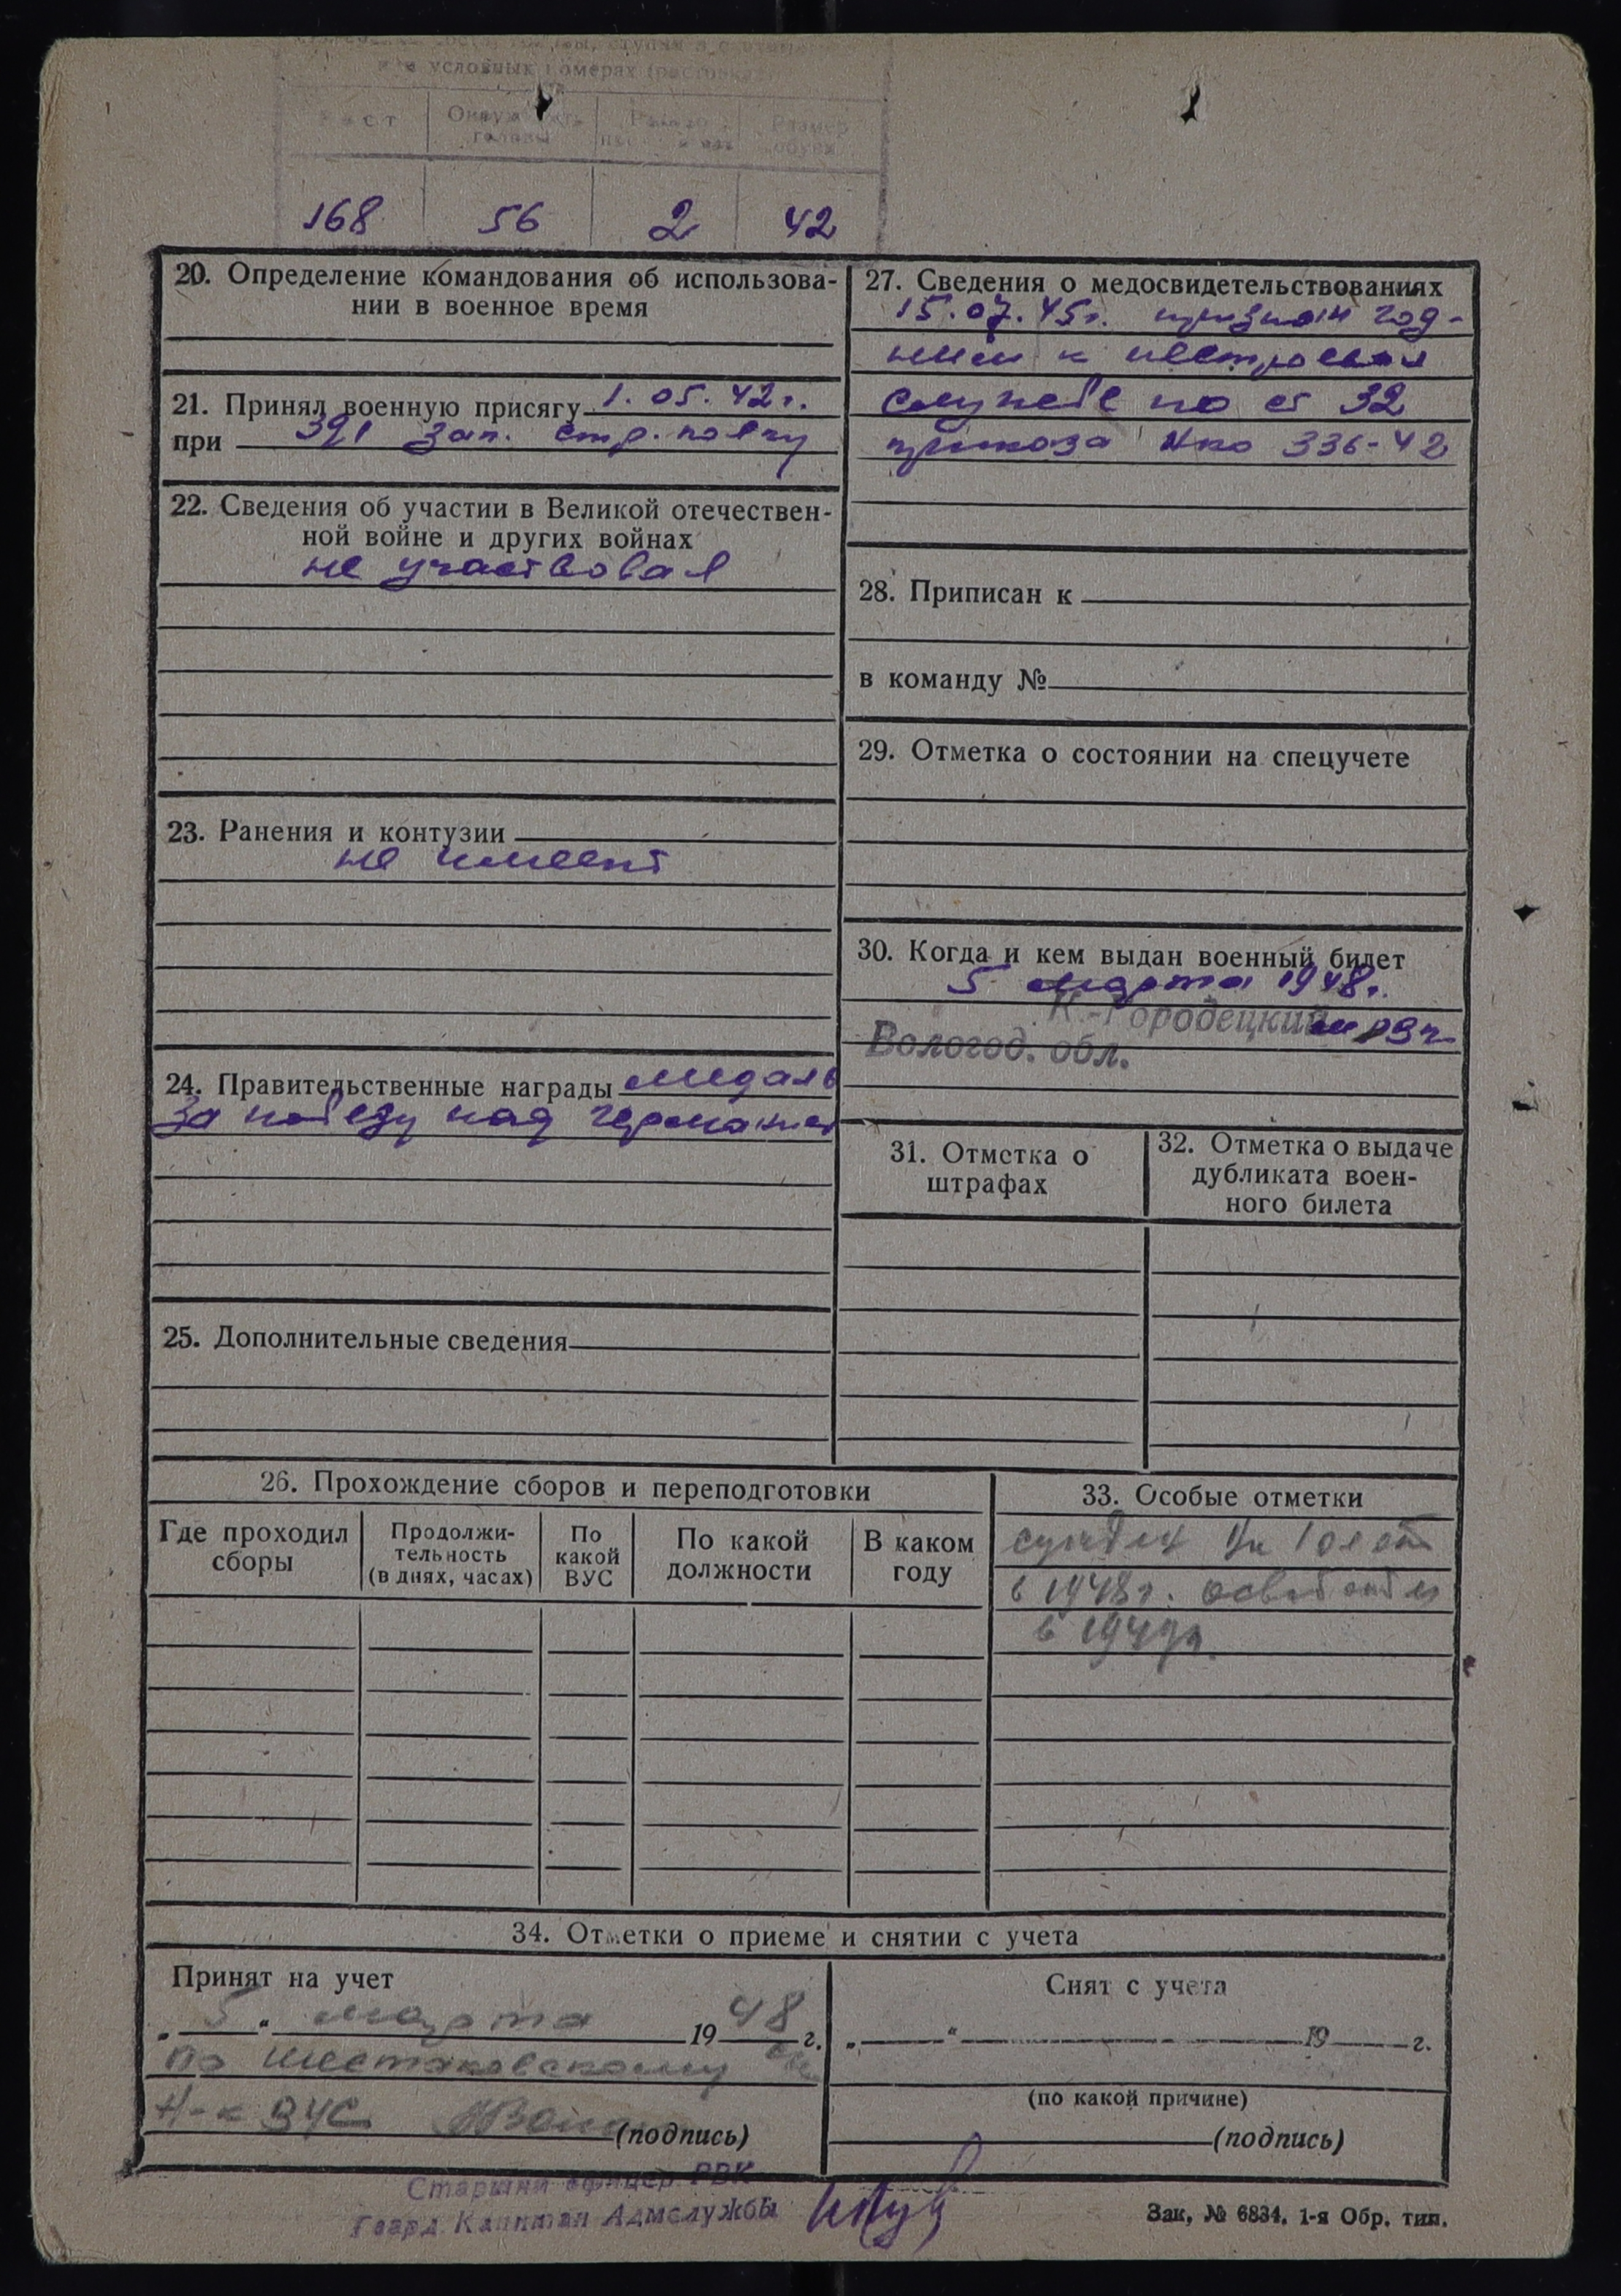 условных номерах
Рост
Окружность
головы
Размер
Размер
обуви
168 56 2 42
20. Определение командования об использова-
нии в военное время
21. Принял военную присягу 1.05.42 г.
при 391 зап. стр. полку
22. Сведения об участии в Великой отечествен-
ной войне и других войнах
не участвовал
23. Ранения и контузии
не имеет
24. Правительственные награды медаль
за победу над германией
25. Дополнительные сведения
27. Сведения о медосвидетельствованиях
15.07.45г. признан год-
ным к нестроевой
службе по ст 32
приказа Нко 336-42
28. Приписан к
в команду №
29. Отметка о состоянии на спецучете
30. Когда и кем выдан военный билет
5 марта 1948г.
К.-Городецкий
Вологод. обл.
31. Отметка о
штрафах
32. Отметка о выдаче
дубликата воен-
ного билета
26. Прохождение сборов и переподготовки
Где проходил
сборы
Продолжи-
тельность
(в днях, часах)
По
какой
ВУС
По какой
должности
В каком
году
33. Особые отметки
судим на 10 лет
в 1948г.
в 1949г.
34. Отметки о приеме и снятии с учета
Принят на учет
„ 5 “ марта 19 48 г.
по Шестаковскому
Н-к ВУС
(подпись)
Снят с учета
„ “ 19 г.
(по какой причине)
(подпись)
Старший офицер РВК
Гвард. Капитан Адмслужбы
Зак. № 6834. 1-я Обр. тип.